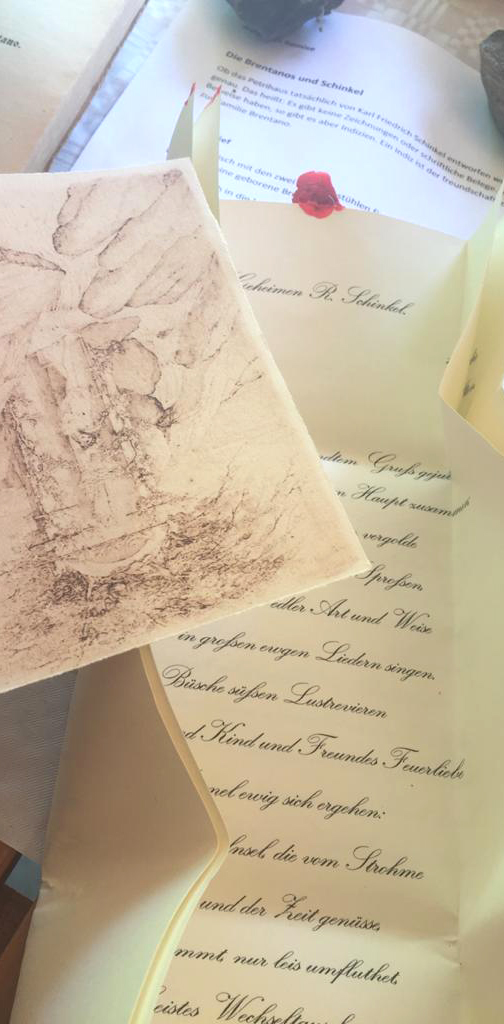 Die Brentanos und Schinkel
Ob das Petrihaus tatsächlich von Karl Friedrich Schinkel entworfen
genau. Das heißt: Es gibt keine Zeichnungen oder schriftliche Belege
Beweise haben, so gibt es aber Indizien. Ein Indiz ist der freundschaft
Familie Brentano.
isch mit den zwei stühlen
ine geborene
Geheimen R. Schinkel.
Gruß
Haupt zusammen
vergolde
Sproßen,
edler Art und Weise
in großen ewgen Liedern singen.
Büsche süßen Lustrevieren
Kind und Freundes Feuerliebe
ewig sich ergehen:
Insel, die vom Strohme
und der Zeit genüsse,
nur leis umfluthet,